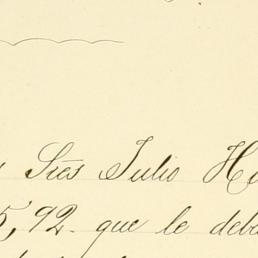 Sres Julio H
5,92 que le deb